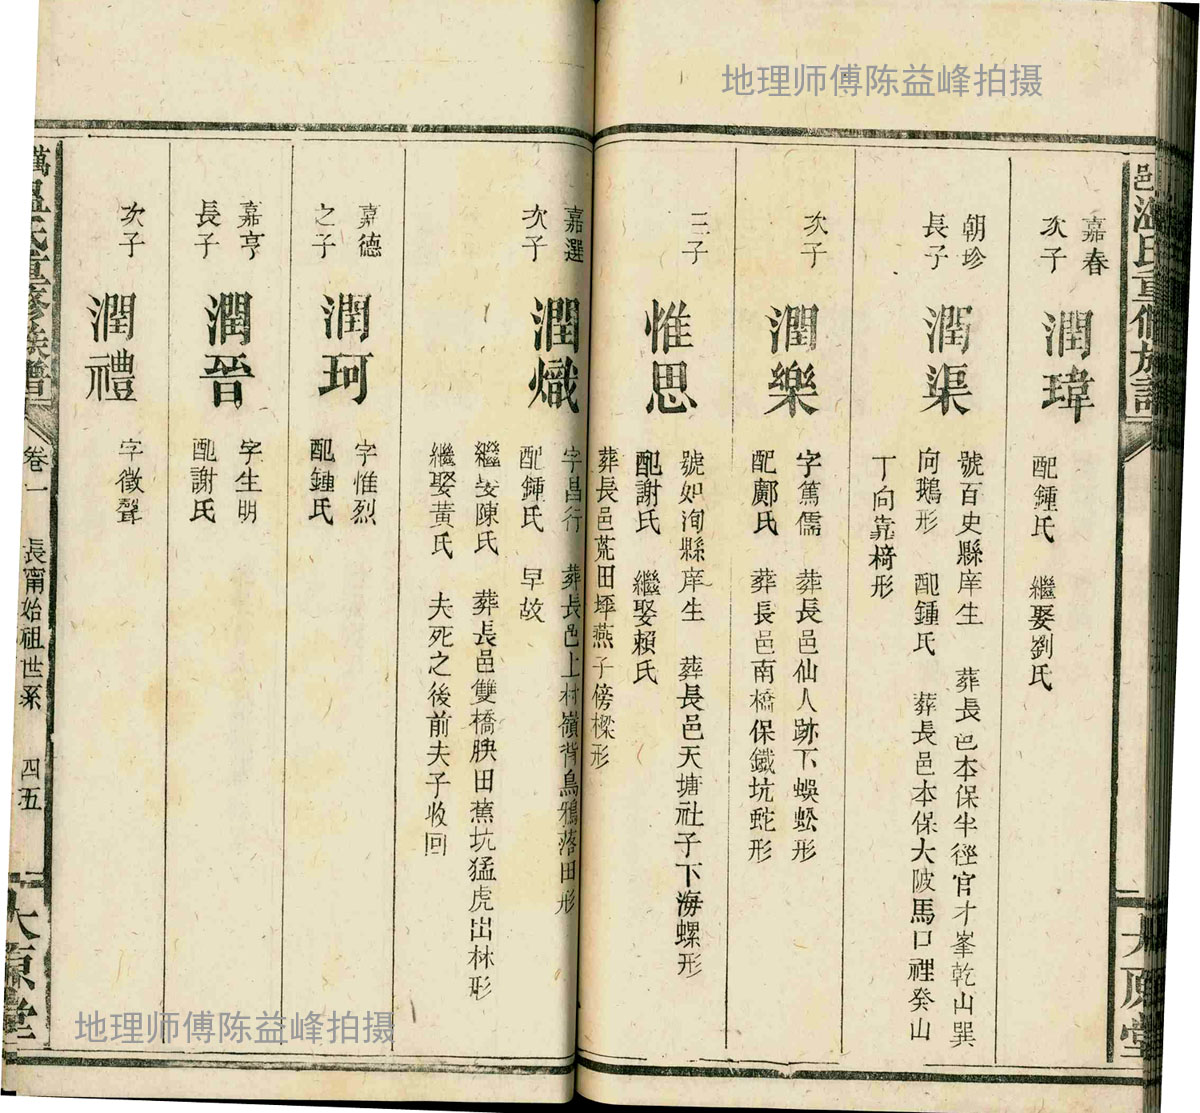 地理师傅陈益峰拍摄
邑溫氏重修族譜
大原堂
嘉春
次子
潤瑋
配鍾氏 繼娶劉氏
朝珍
長子
潤渠
號百史縣庠生 葬長邑本保半徑官才峯乾山巽
向鵝形 配鍾氏 葬長邑本保大陂馬口裡癸山
丁向靠椅形
次子
潤樂
字篤儒 葬長邑仙人跡下蜈蚣形
配鄺氏 葬長邑南橋保鐵坑蛇形
三子
惟思
號如洵縣庠生 葬長邑天塘社子下海螺形
配謝氏 繼娶賴氏
葬長邑荒田墿燕子傍樑形
嘉選
次子
潤熾
字昌行 葬長邑上村嶺背烏鴉落田形
配鍾氏 早故
繼娶陳氏 葬長邑雙橋腴田蕉坑猛虎出林形
繼娶黃氏 夫死之後前夫子收回
嘉德
之子
潤珂
字惟烈
配鍾氏
嘉亨
長子
潤晉
字生明
配謝氏
次子
潤禮
字徵聲
溫氏重修族譜
卷一 長甯始祖世系 四五
大原堂
地理师傅陈益峰拍摄